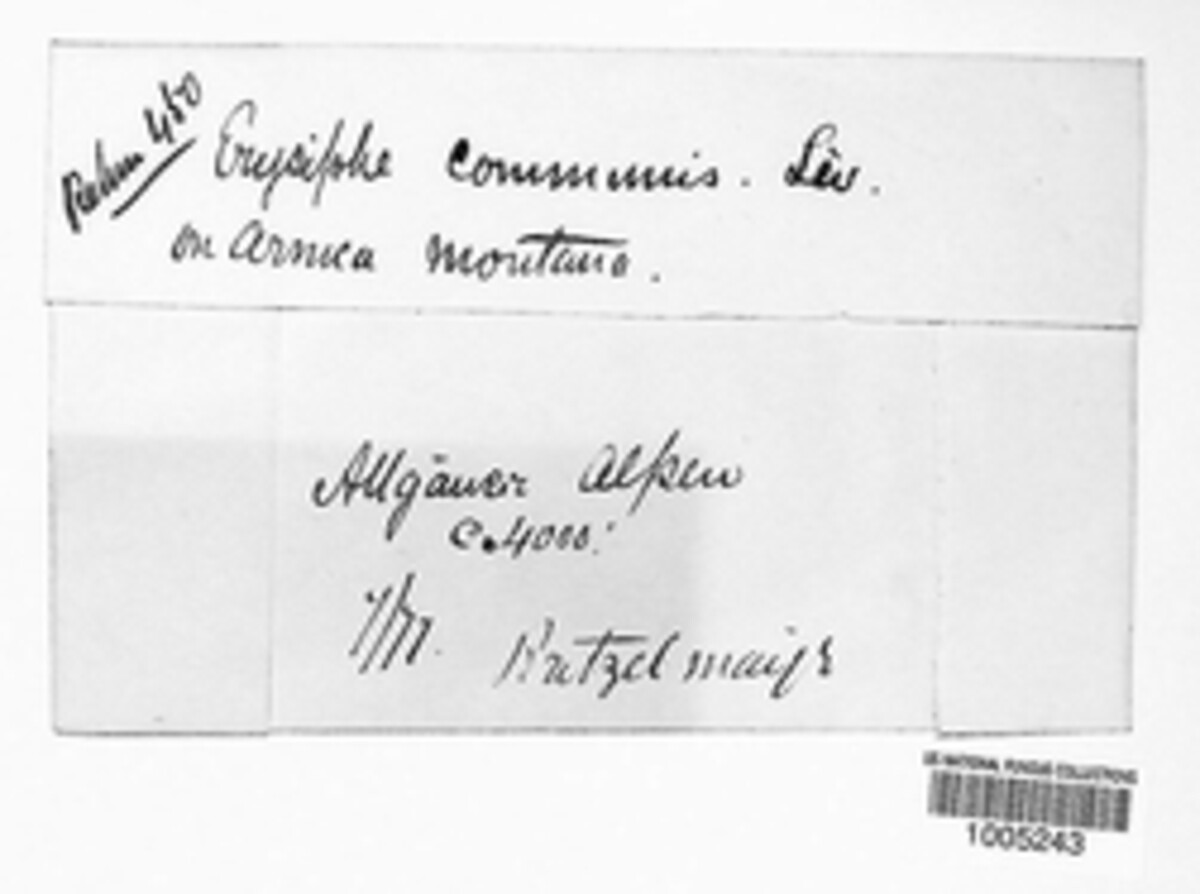 Rehm 450
Erysiphe communis. Lév.
on Arnica montana.
Allgäuer Alpen
c. 4000'.
Britzelmayr
US NATIONAL FUNGUS COLLECTIONS
1005243